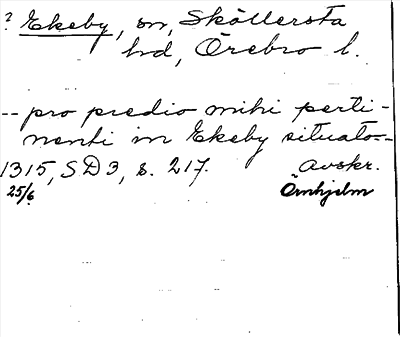 ? Ekeby, sn, Sköllersta
hd, Örebro l.
-- pro predio mihi perti-
nenti in Ekeby situato--
1315, SD3, s. 217. Avskr.
25/6 Örnhjelm